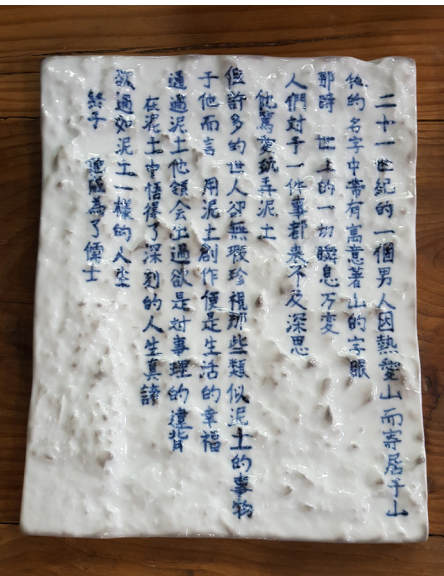 二十一世紀的一個男人因熱愛山而寄居于山
他的名字中带有寓意著山的字眼
那時 世上的一切瞬息万变
人們对于一件事都来不及深思
他篤爱玩弄泥土
但許多的世人卻無暇珍視那些類似泥土的事物
于他而言 用泥土創作便是生活的幸福
通過泥土他领会出過欲是对事理的違背
在泥土中悟得了深刻的人生真諦
渡過如泥土一樣的人生
終于 他成為了儒士